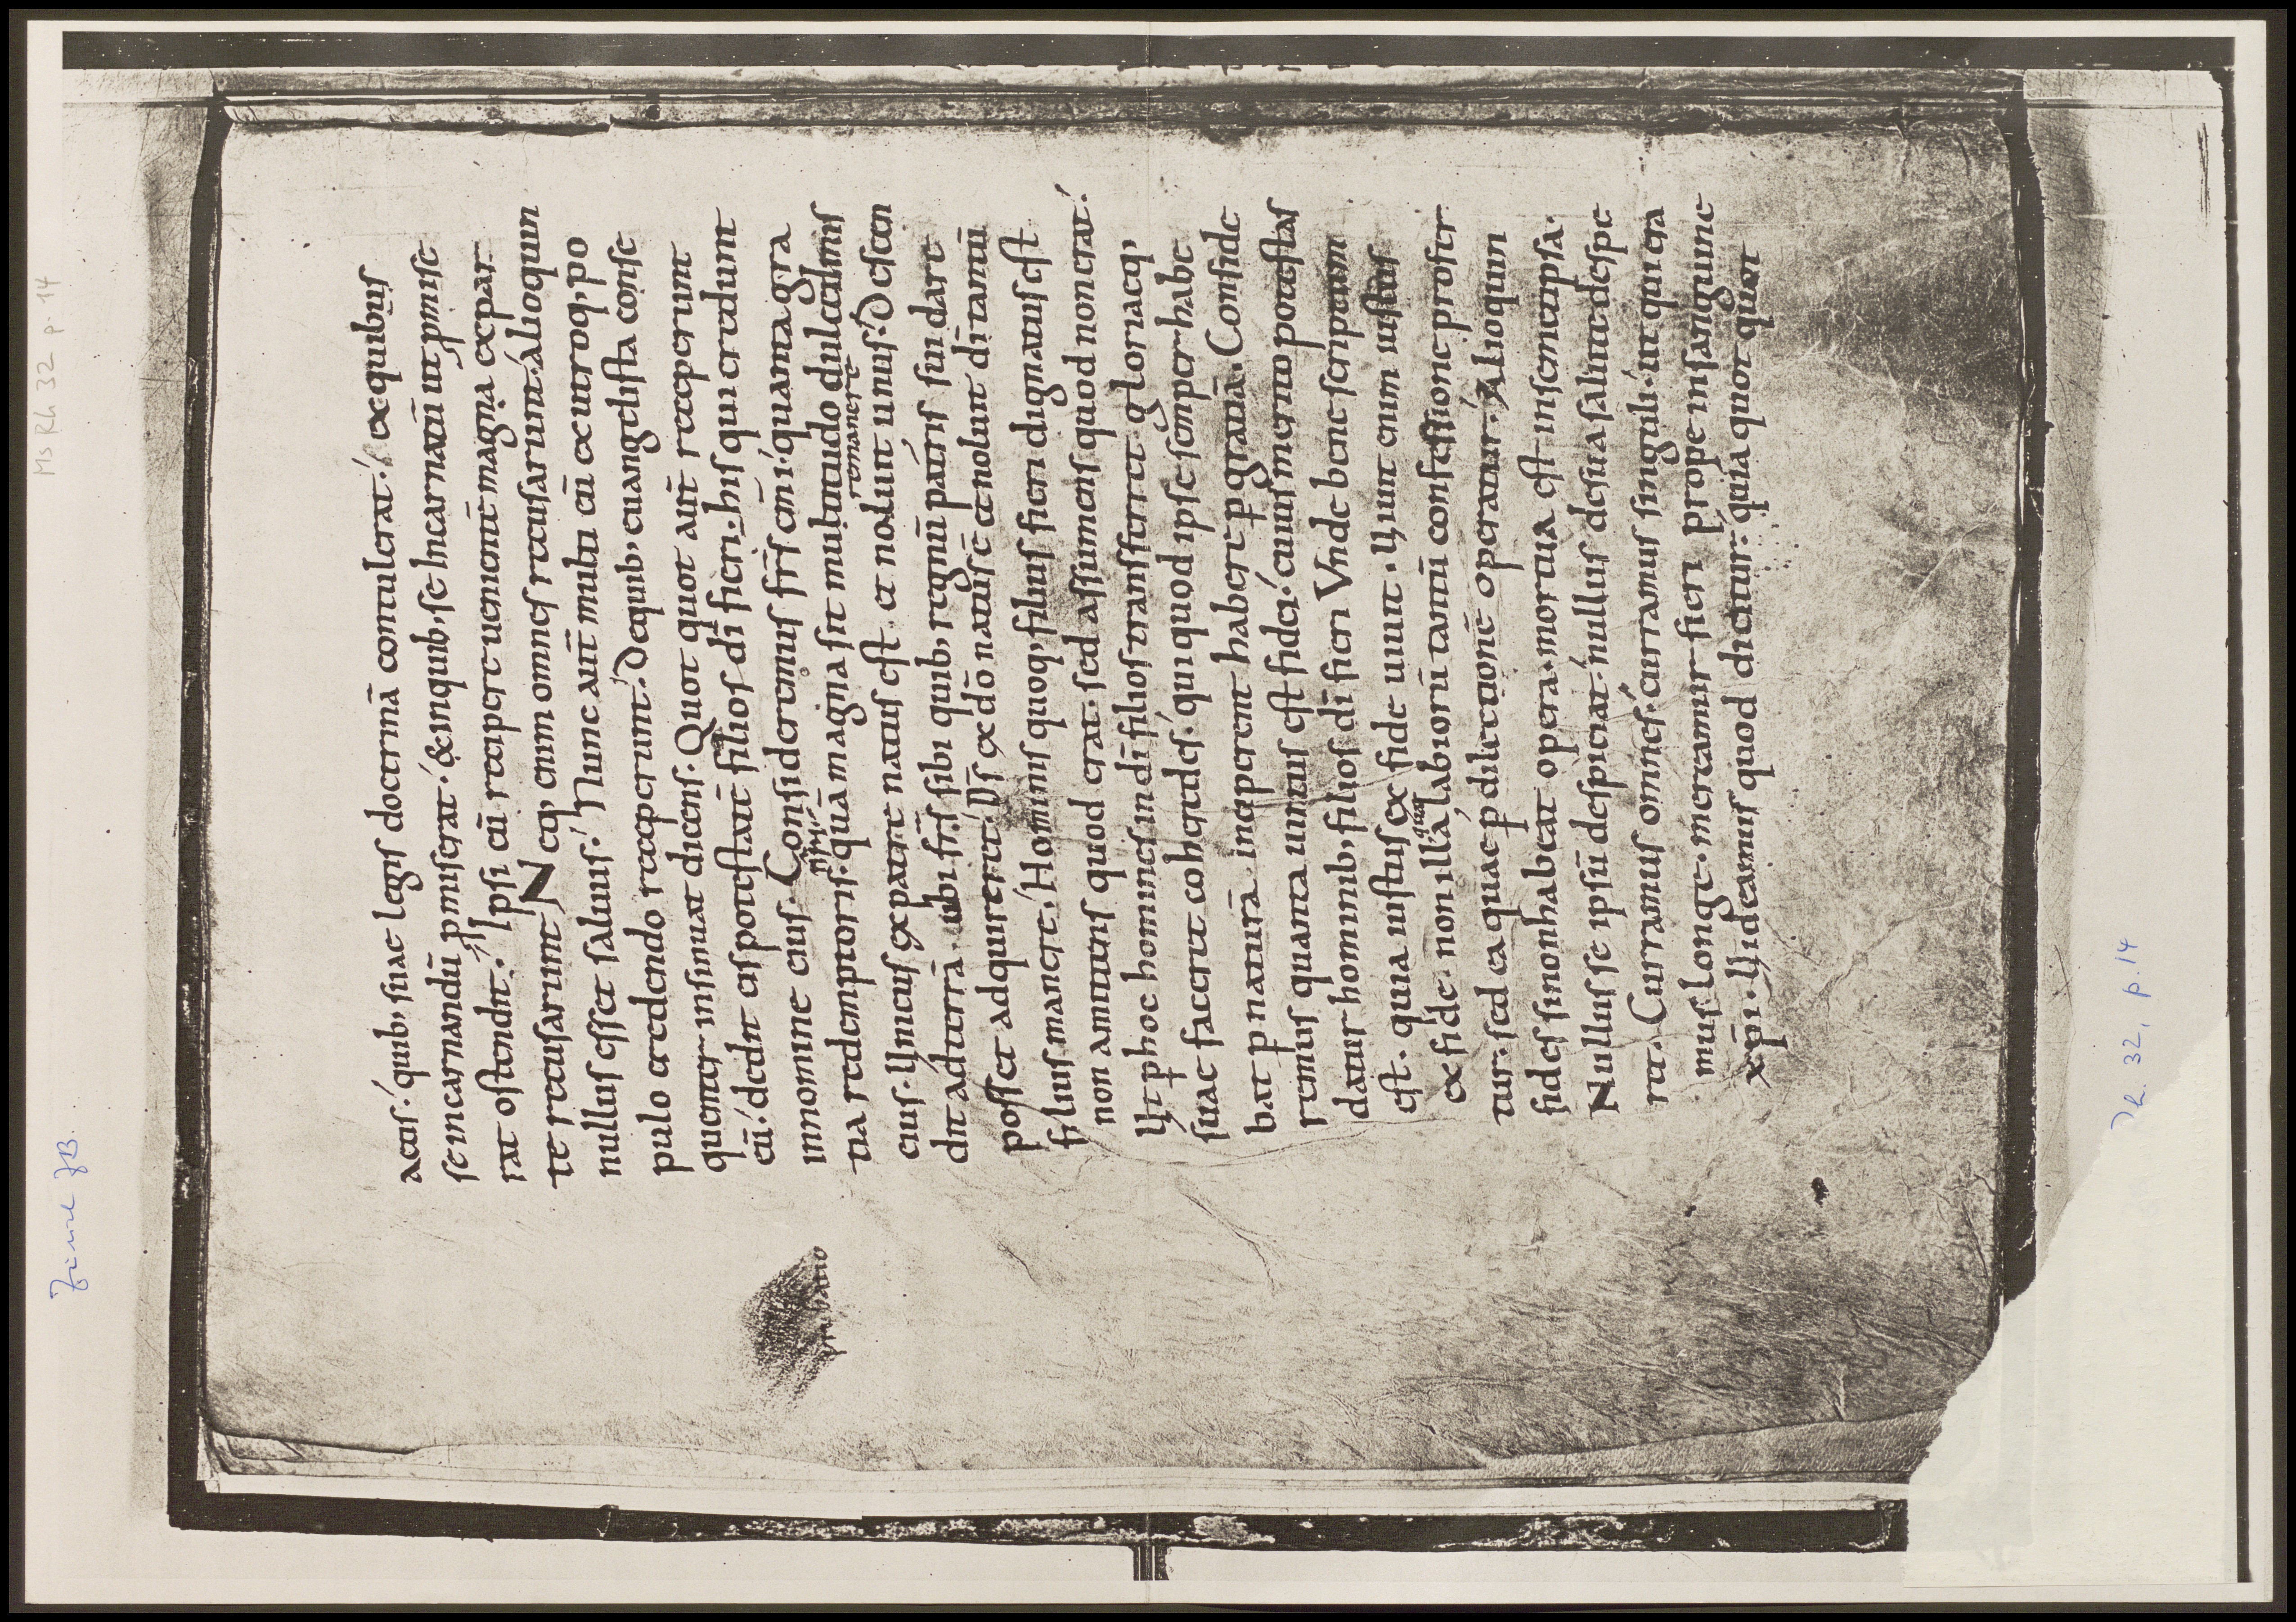 Ms Rh 32 p. 14
acus. quib, suae legis doctrinā contulerat. ex quibus
se incarnandū p̄miserat. & inquib, se Incarnatū ut p̄mise
rat ostendit. Ipsi eū recipere uenientē magna ex par
te recusarunt. Neq, enim omnes recusarunt. Alioquin
nullus esset saluus. Nunc aut̄ multi eū ex utroq, po
pulo credendo receperunt. De quib, euangelista conse
quenter insinuat dicens. Quot quot aut̄ receperunt
eū. dedit eis potestatē filios dī fieri. his qui credunt
innomine eius. Consideremus fr̄s em̄i. quanta gra
tia redemptoris. quā magna sit multitudo dulcedinis
remanere
eius. Unicus ex patre natus est. et noluit unus. Descen
dit ad terrā. ubi fr̄s sibi quib, regnū patris sui dare
posset adquireret. Dс̄ ex dō natus ē et noluit dī tantū
filius manere. Hominis quoq, filius fieri dignatus est
non amittens quod erat. sed assumens quod non erat.
Ut p hoc homines in dī filios transferret. gloriaeq,
suae faceret coheredes. qui quod ipse semper habe
bat p naturā. inciperent habere p gratiā. Confide
remus quanta uirtus est fidei. cuius merito potestas
datur hominib, filios dī fieri Vnde bene scriptum
est. quia iustus ex fide uiuit. Uiuit enim iustus
quae
ex fide. non illa labiorū tantū confessione profer
tur. sed ea quae p dilectionē operatur. Alioquin
fides si non habeat opera. mortua est in semetipsa.
Nullus se ipsū despiciat. nullus de sua salute despe
ret. Curramus omnes. curramus singuli. ut qui era
mus longe. mereamur fieri prope in sanguine
xp̄i. Uideamus quod dicitur. quia quot quot
Rh. 32, p. 14